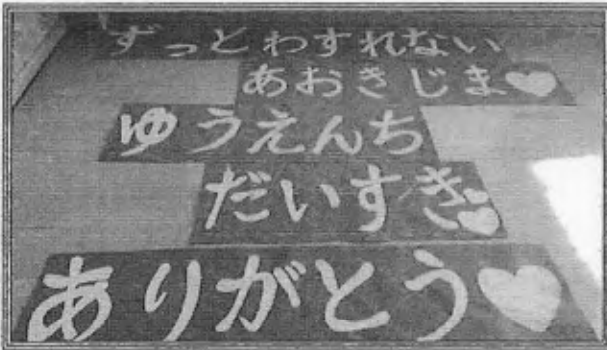 ずっとわすれない
あおきじま♥
ゆうえんち
だいすき♥
ありがとう♥